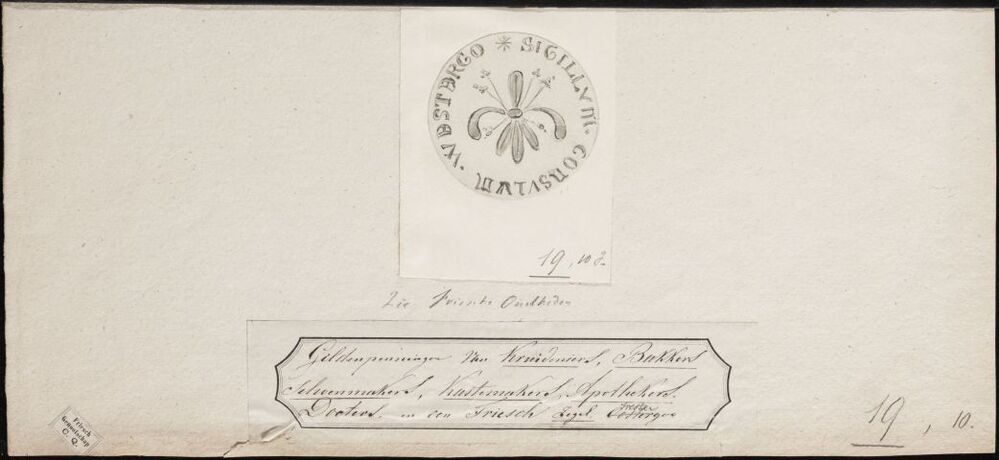 * SIGILLVM · CONSVLVM · WESTERGO
19, 10 2.
Zie Friesche Oudheden
Gildenpenningen van Kruideniers, Bakkers
Schoenmakers, Kastemakers, Apothekers.
Doctors. en een Friesch Zegel Oostergoo
Wester
19, 10.
Friesch
Genootschap
C. Q.